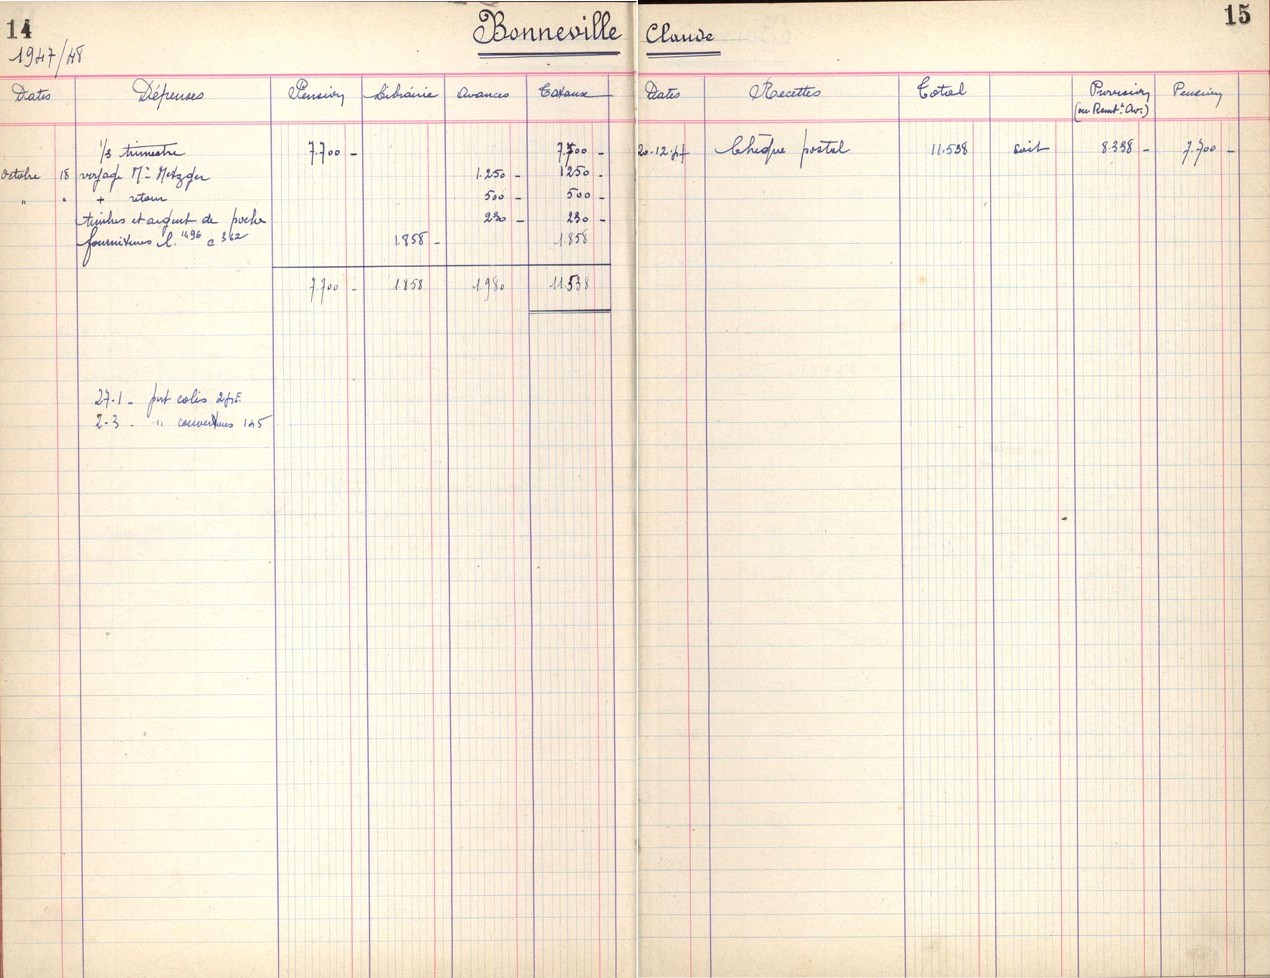 14
1947/48
Bonneville Claude
15
Dates Dépenses Pension Librairie Avances Totaux
Dates Recettes Total Provision Pension
(ou Rembt. Av.)
1/3 trimestre 7.700 - 7.700 -
20.12.47 Chèque postal 11.538 soit 3.838 - 7.700 -
octobre 18 voyage Mr Metzger 1.250 - 1250 -
" " + retour 500 - 500 -
timbres et argent de poche 230 - 230 -
fournitures l. 1496 c 362 1.858 - 1.858
7.700 - 1.858 1.980 11.538
27.1 - port colis
2.3 - " couvertures 145